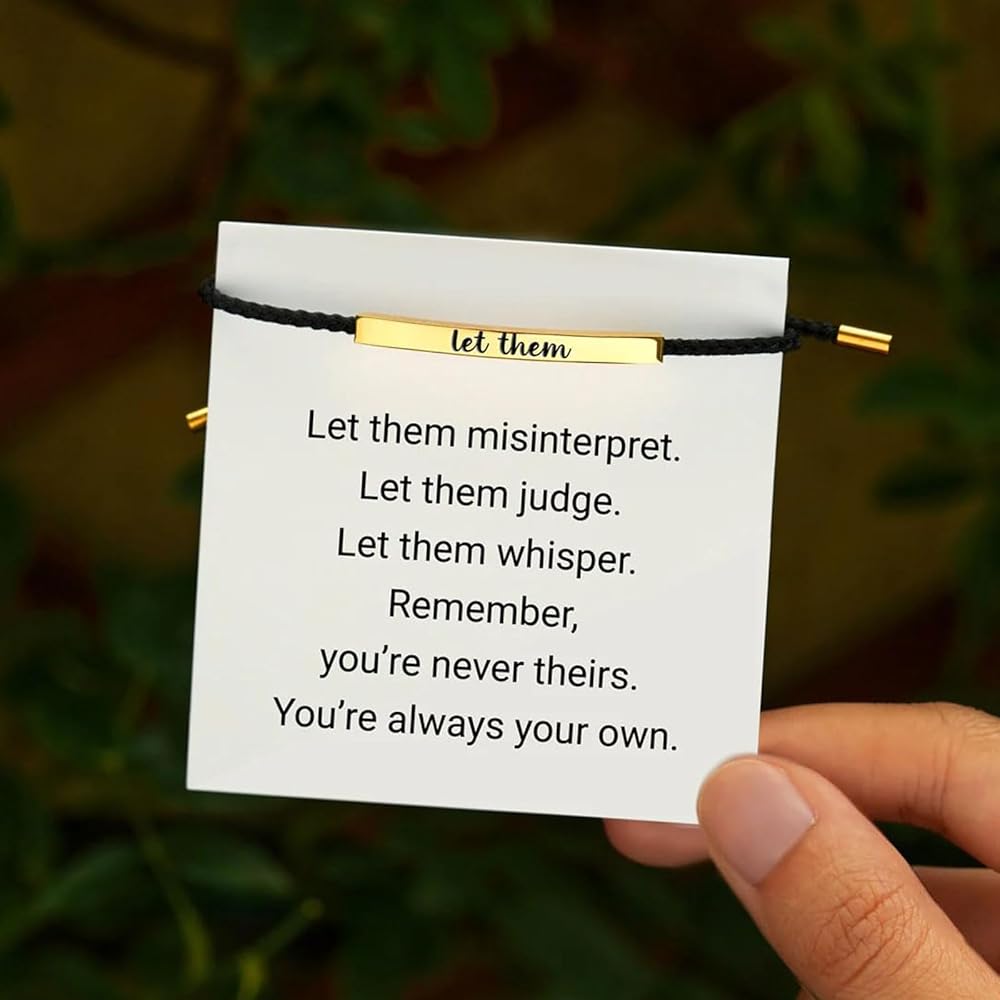 let them
Let them misinterpret.
Let them judge.
Let them whisper.
Remember,
you’re never theirs.
You’re always your own.